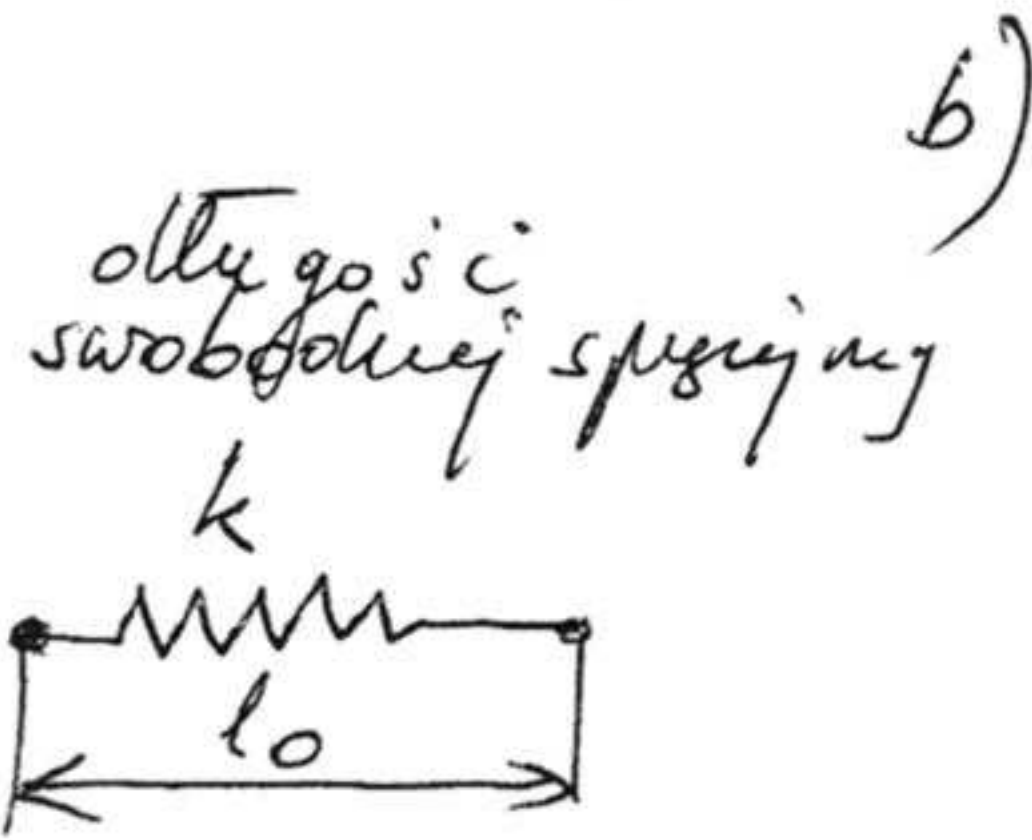 b)
długość
swobodnej sprężyny
k
l0